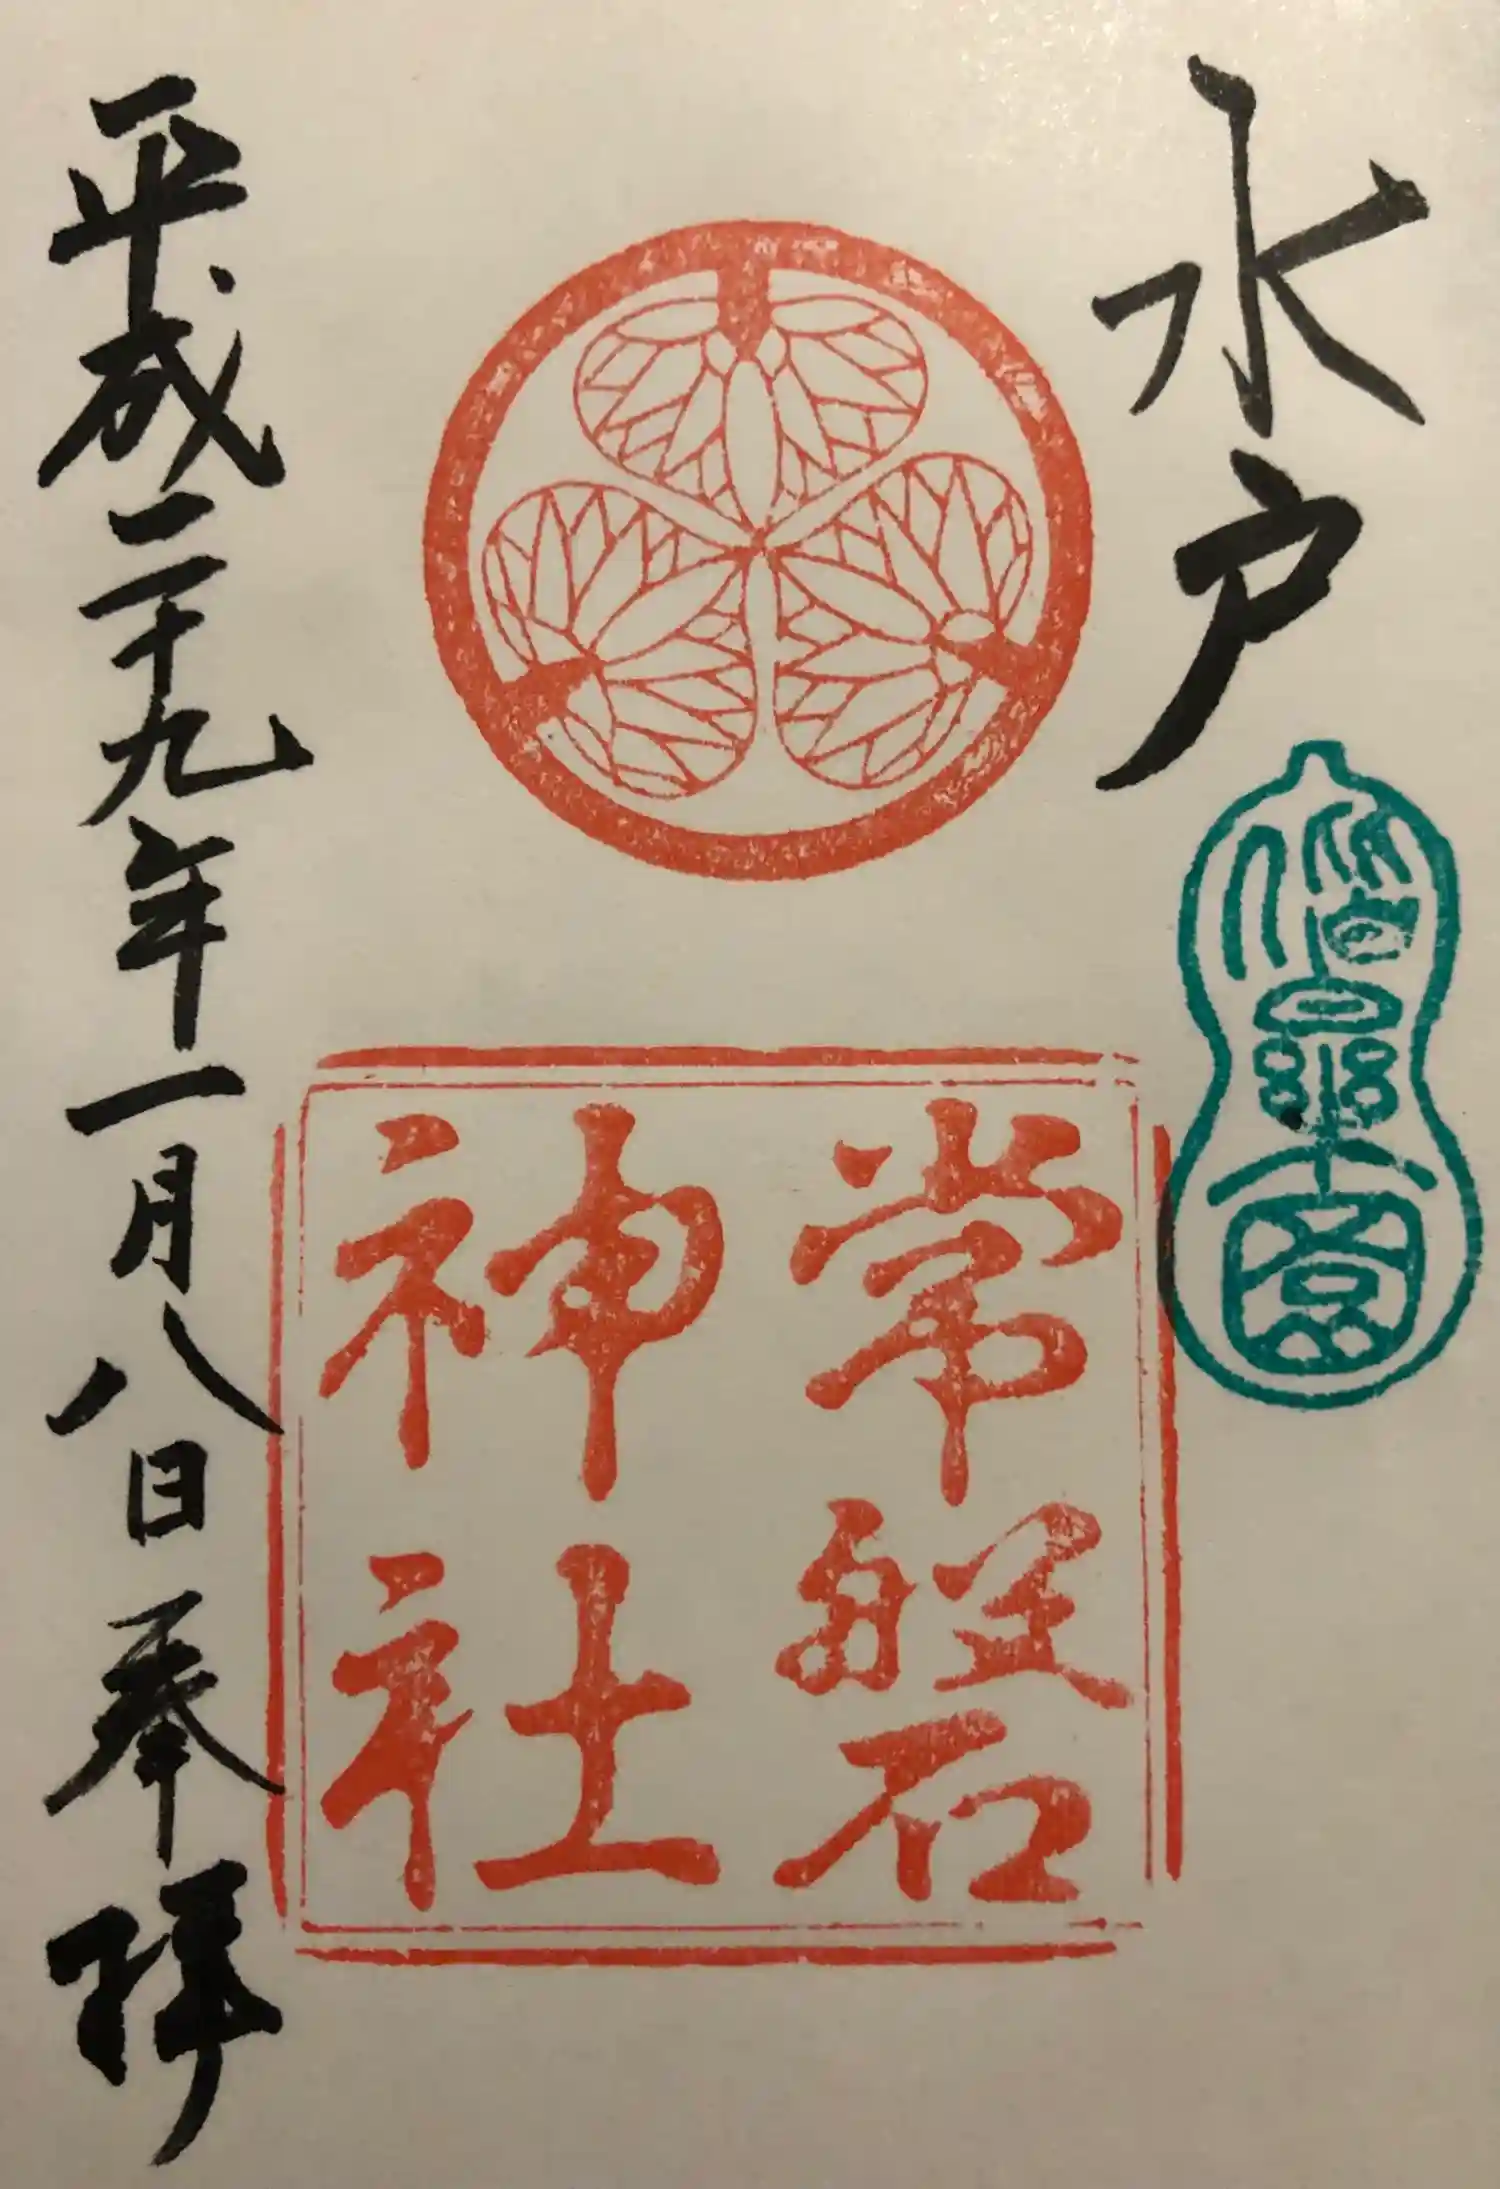 水戸
常磐
神社
平成二十九年一月八日奉拝